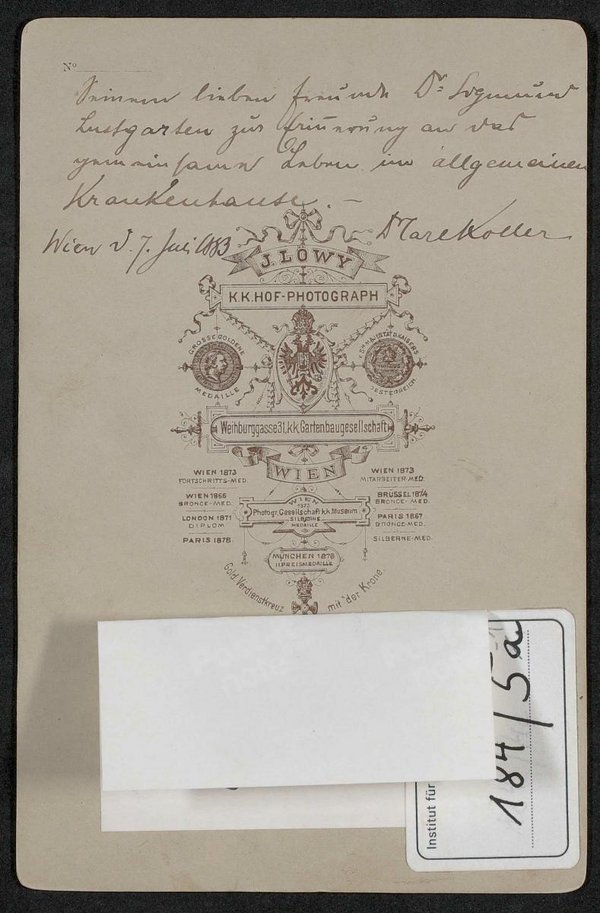 No
Seinem lieben Freunde Dr. Sigmund
Lustgarten zur Erinnerung an das
gemeinsame Leben im allgemeinen
Krankenhause. –
Wien d. 7. Juli 1883 Karl Koller
J. LÖWY
K.K. HOF-PHOTOGRAPH
GROSSE GOLDENE
MEDAILLE
OESTERREICH
Weihburggasse 31, k.k. Gartenbaugesellschaft
WIEN
WIEN 1873
FORTSCHRITTS-MED.
WIEN 1866
BRONCE-MED.
LONDON 1871
DIPLOM
PARIS 1878
WIEN 1873
MITARBEITER-MED.
BRÜSSEL 1874
BRONCE-MED.
PARIS 1867
BRONCE-MED.
SILBERNE-MED.
WIEN
Photogr. Gesellschaft k.k. Museum
SILBERNE
MEDAILLE
MÜNCHEN 1876
II PREISMEDAILLE
Gold. Verdienstkreuz mit der Krone.
Institut für
184/5a